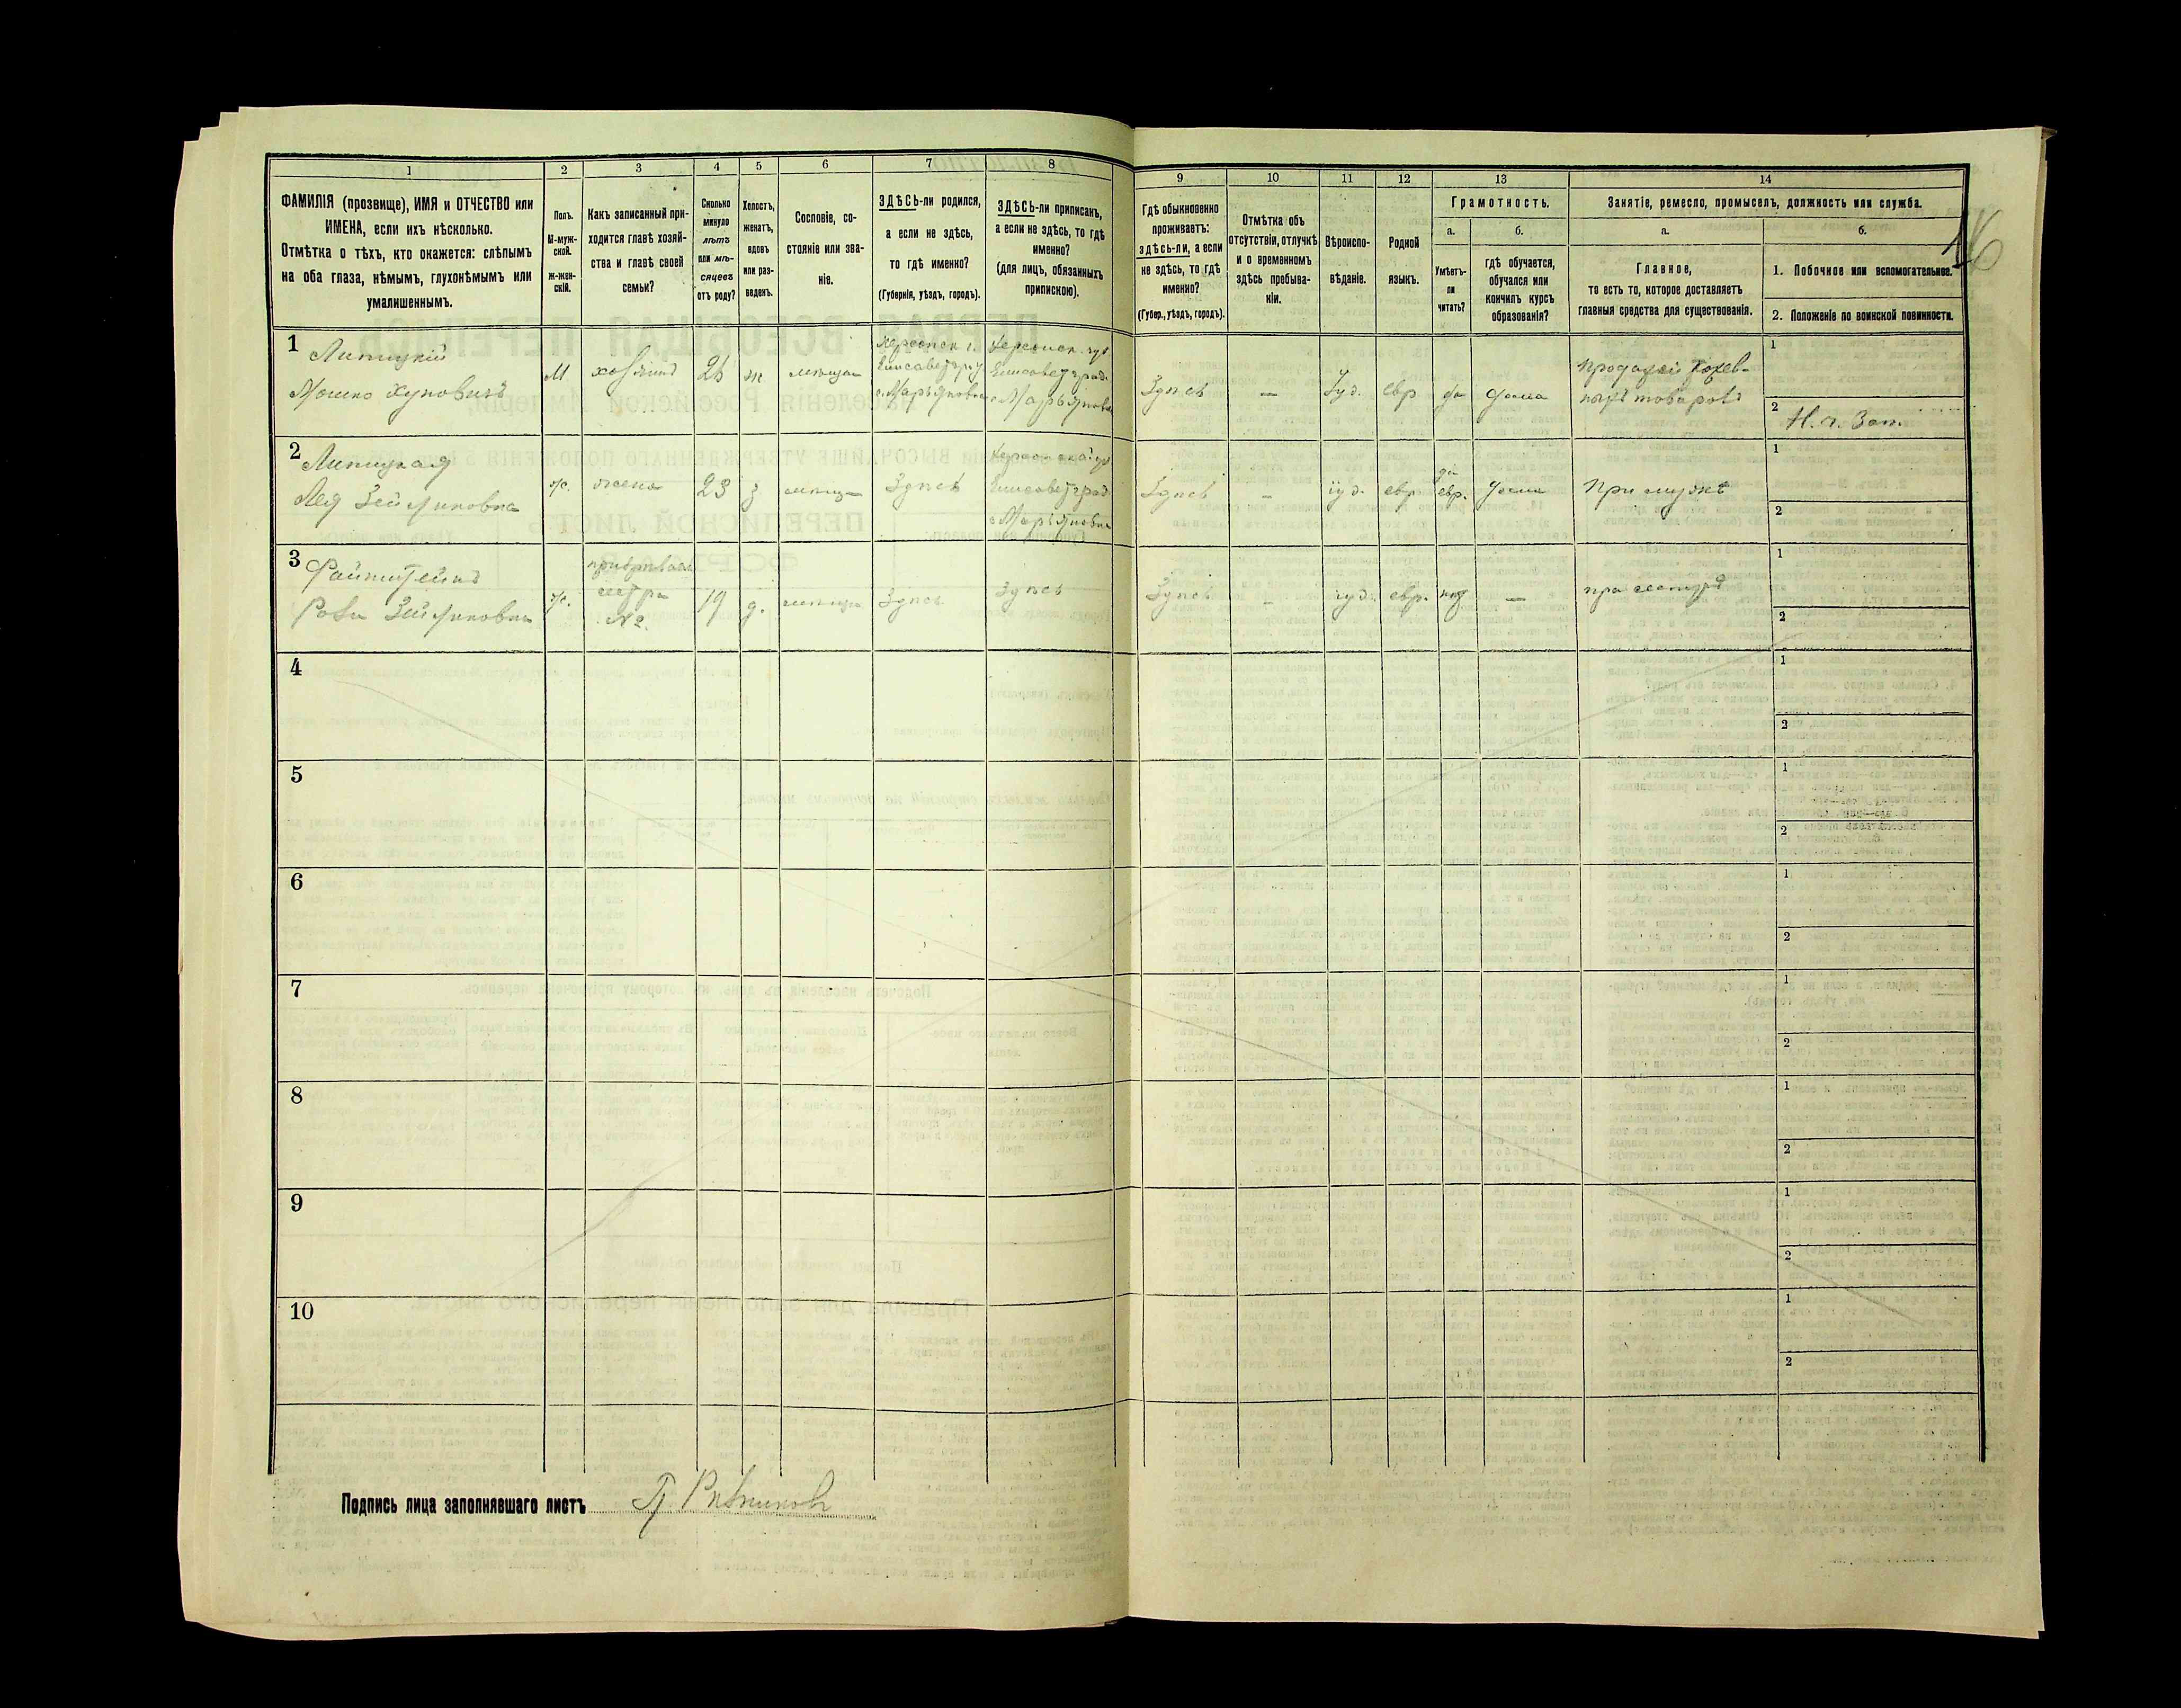 1 2 3 4 5 6 7 8 9 10 11 12 13 14
ФАМИЛІЯ (прозвище), ИМЯ и ОТЧЕСТВО или
ИМЕНА, если ихъ нѣсколько.
Отмѣтка о тѣхъ, кто окажется: слѣпымъ
на оба глаза, нѣмымъ, глухонѣмымъ или
умалишеннымъ.
Полъ.
М-муж-
ской.
ж-жен-
скій.
Какъ записанный при-
ходится главѣ хозяй-
ства и главѣ своей
семьи?
Сколько
минуло
лѣтъ
или мѣ-
сяцевъ
отъ роду?
Холостъ,
женатъ,
вдовъ
или раз-
веденъ.
Сословіе, со-
стояніе или зва-
ніе.
ЗДѢСЬ-ли родился,
а если не здѣсь,
то гдѣ именно?
(Губернія, уѣздъ, городъ).
ЗДѢСЬ-ли приписанъ,
а если не здѣсь, то гдѣ
именно?
(для лицъ, обязанныхъ
припискою).
Гдѣ обыкновенно
проживаетъ:
здѣсь-ли, а если
не здѣсь, то гдѣ
именно?
(Губер., уѣздъ, городъ).
Отмѣтка объ
отсутствіи, отлучкѣ
и о временномъ
здѣсь пребыва-
ніи.
Вѣроиспо-
вѣданіе.
Родной
языкъ.
Грамотность.
а.
Умѣетъ-
ли
читать?
б.
гдѣ обучается,
обучался или
кончилъ курсъ
образованія?
Занятіе, ремесло, промыселъ, должность или служба.
а.
Главное,
то есть то, которое доставляетъ
главныя средства для существованія.
б.
1. Побочное или вспомогательное.
2. Положеніе по воинской повинности.
16
1 Липицкій
Мошко
М
хозяинъ
26
ж
Херсонск. г.
Елисаветгр у
с. Марьяновка
Херсонск. губ
Елисаветград.
с. Марьяновка
Здѣсь
—
Іуд.
евр
да
дома
Н. г. Зап.
2 Липицкая
Лея Зейликовна
ж.
жена
23
з
Здѣсь
Елисаветград
с. Маріяновка
Здѣсь
—
іуд.
евр
да
евр.
дома
При мужѣ
3 Файнштейнъ
Роза Зейликовна
ж.
сестра
19
д.
Здѣсь
Здѣсь
Здѣсь
—
іуд.
евр.
—
при сестрѣ
4
5
6
7
8
9
10
1
2
1
2
1
2
1
2
1
2
1
2
1
2
1
2
1
2
1
2
Подпись лица заполнявшаго листъ